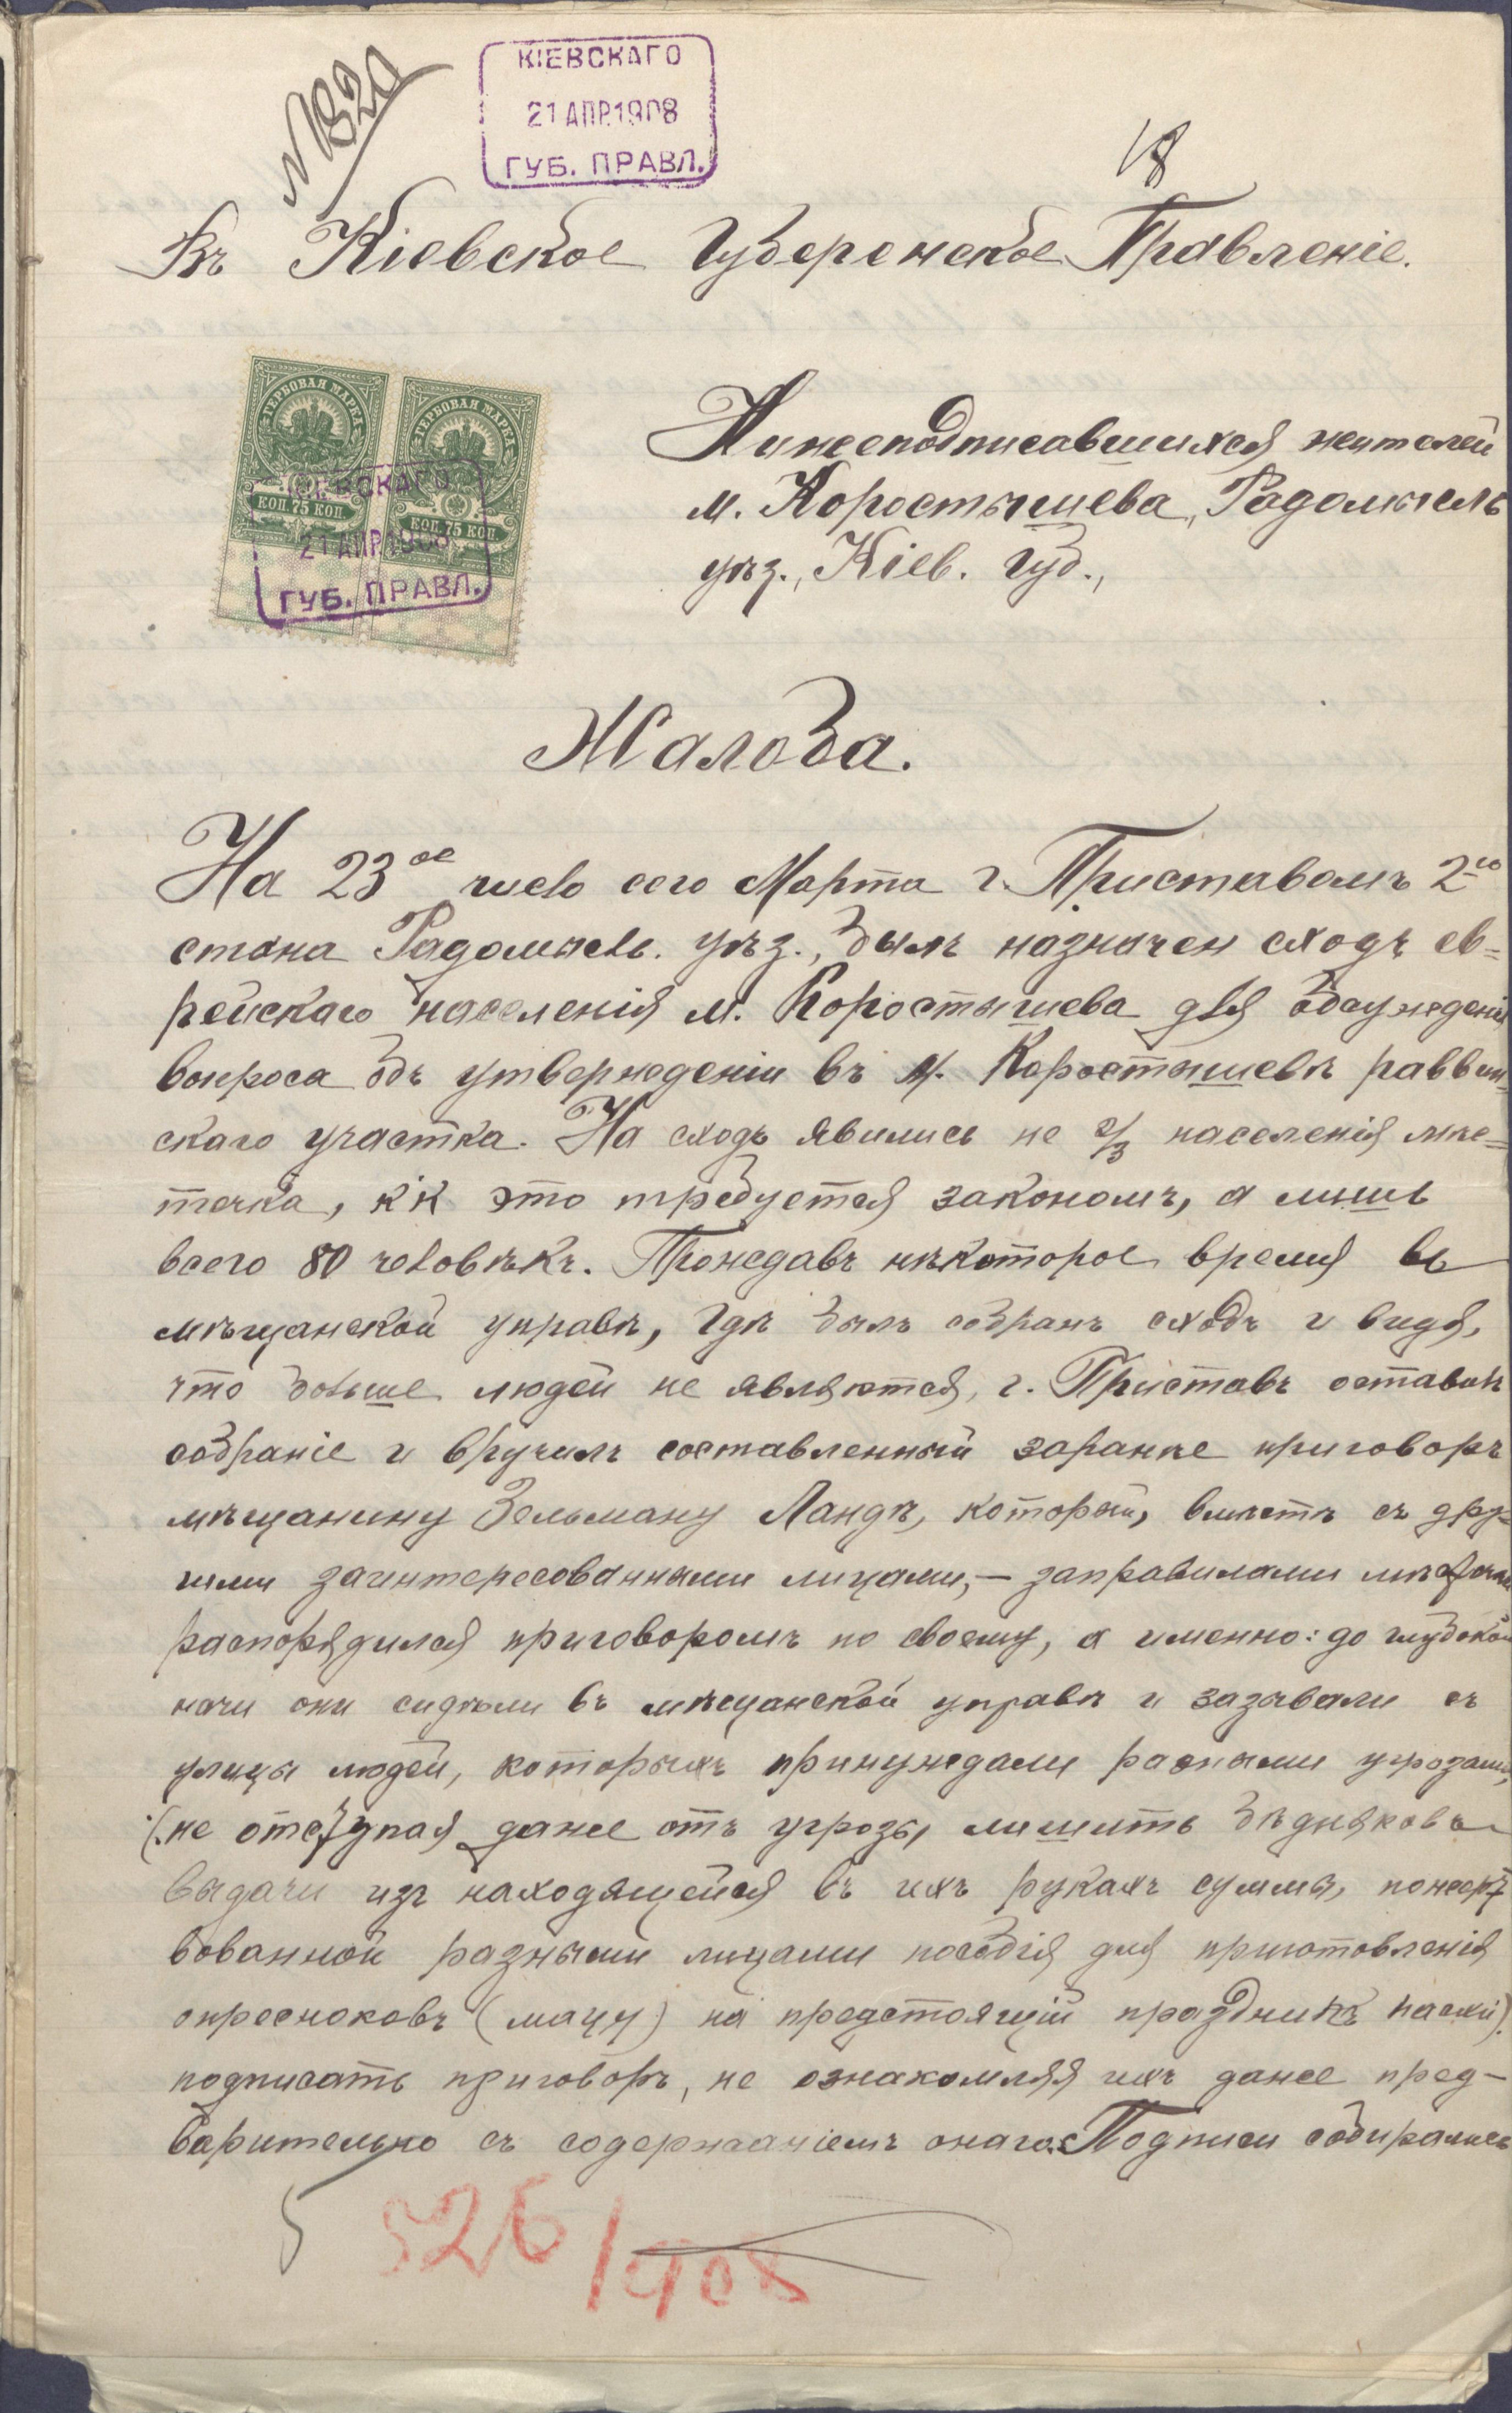 № 1320
КІЕВСКАГО
21 АПР.1908
ГУБ. ПРАВЛ.
18
Въ Кіевское Губернское Правленіе.
ГЕРБОВАЯ МАРКА
ГЕРБОВАЯ МАРКА
КОП. 75 КОП.
КОП. 75 КОП.
КІЕВСКАГО
21 АПР.1908
ГУБ. ПРАВЛ.
Нижеподписавшихся жителей
м. Коростышева, Радомысль
уѣз., Кіев. Губ.,
Жалоба.
На 23ое число сего Марта г. Приставомъ 2го
стана Радомысль. уѣз., былъ назначен сходъ ев=
рейскаго населенія м. Коростышева для обсужденія
вопроса объ утвержденіи въ м. Коростышевѣ раввин-
скаго участка. На сходъ явились не 2/3 населенія мѣс=
течка, к'к это требуется закономъ, а лишь
всего 80 человѣкъ. Прождавъ нѣкоторое время въ
мѣщанской управѣ, гдѣ былъ собранъ сходъ и видя,
что больше людей не являются, г. Приставъ оставилъ
собраніе и вручилъ составленный заранѣе приговоръ
мѣщанину Зельману Ландѣ, который, вмѣстѣ съ дру-
гими заинтересованными лицами, — заправилами мѣстечка
распорядился приговоромъ по своему, а именно: до глубокой
ночи они сидѣли въ мѣщанской управѣ и зазывали съ
улицы людей, которыхъ принуждали разными угрозами,
(не отступая даже отъ угрозы лишить бѣдняковъ
выдачи изъ находящейся въ ихъ рукахъ суммы, пожерт-
вованной разными лицами пособія для приготовленія
опресноковъ (мацу) на предстоящій праздникъ пасхи)
подписать приговоръ, не ознакомляя ихъ даже пред-
варительно съ содержаніемъ онаго. Подписи собирались
5 526/908